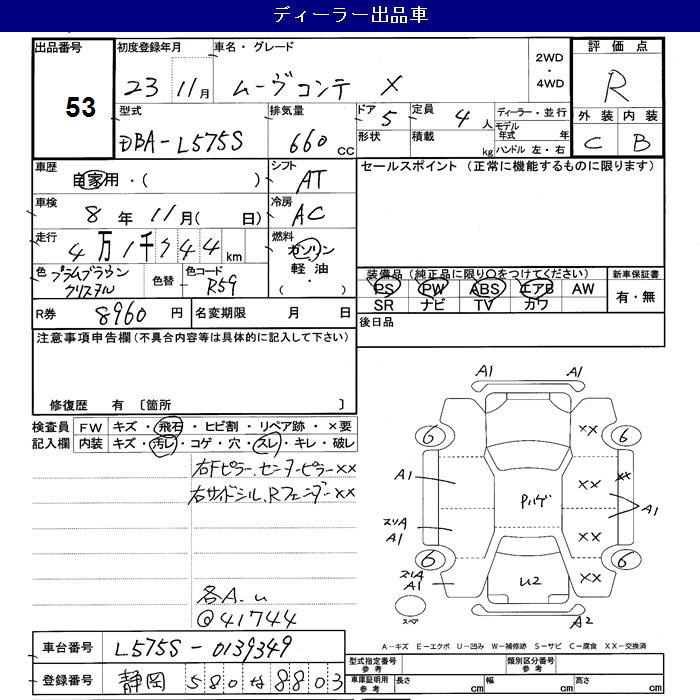 ディーラー出品車
出品番号 53
初度登録年月 23 11月
車名・グレード ムーヴコンテ X
2WD・4WD
評価点 R
外装 C 内装 B
型式 DBA-L575S
排気量 660 cc
ドア 5 定員 4 人
形状 積載 kg
ディーラー・並行
モデル年式 年
ハンドル 左・右
車歴 自家用・( )
シフト AT
セールスポイント (正常に機能するものに限ります)
車検 8年 11月( 日)
冷房 AC
走行 4万1千744km
燃料 ガソリン 軽油 ( ・ )
色 プラムブラウンクリスタル 色替 色コード R59
装備品(純正品に限り○をつけてください)
PS PW ABS エアB AW
SR ナビ TV カワ
新車保証書 有・無
R券 8960円 名変期限 月 日
後日品
注意事項申告欄(不具合内容等は具体的に記入して下さい)
修復歴 有 〔箇所 〕
検査員記入欄
FW キズ・飛石・ヒビ割・リペア跡・×要
内装 キズ・汚レ・コゲ・穴・スレ・キレ・破レ
右Fピラー、センターピラーXX
右サイドシル、RフェンダーXX
各A.u
@41744
A1 A1
6 XX 6
A1 XX XX A1
Pルゲ
スリA A1 XX
6 6
スリA A1 U2 XX
スペア A2
A-キズ E-エクボ U-凹み W-補修跡 S-サビ C-腐食 XX-交換済
車台番号 L575S-0139349
登録番号 静岡 580 な 8803
型式指定番号 参考 類別区分番号 参考
車庫証明用 参考 長さ cm 幅 cm 高さ cm